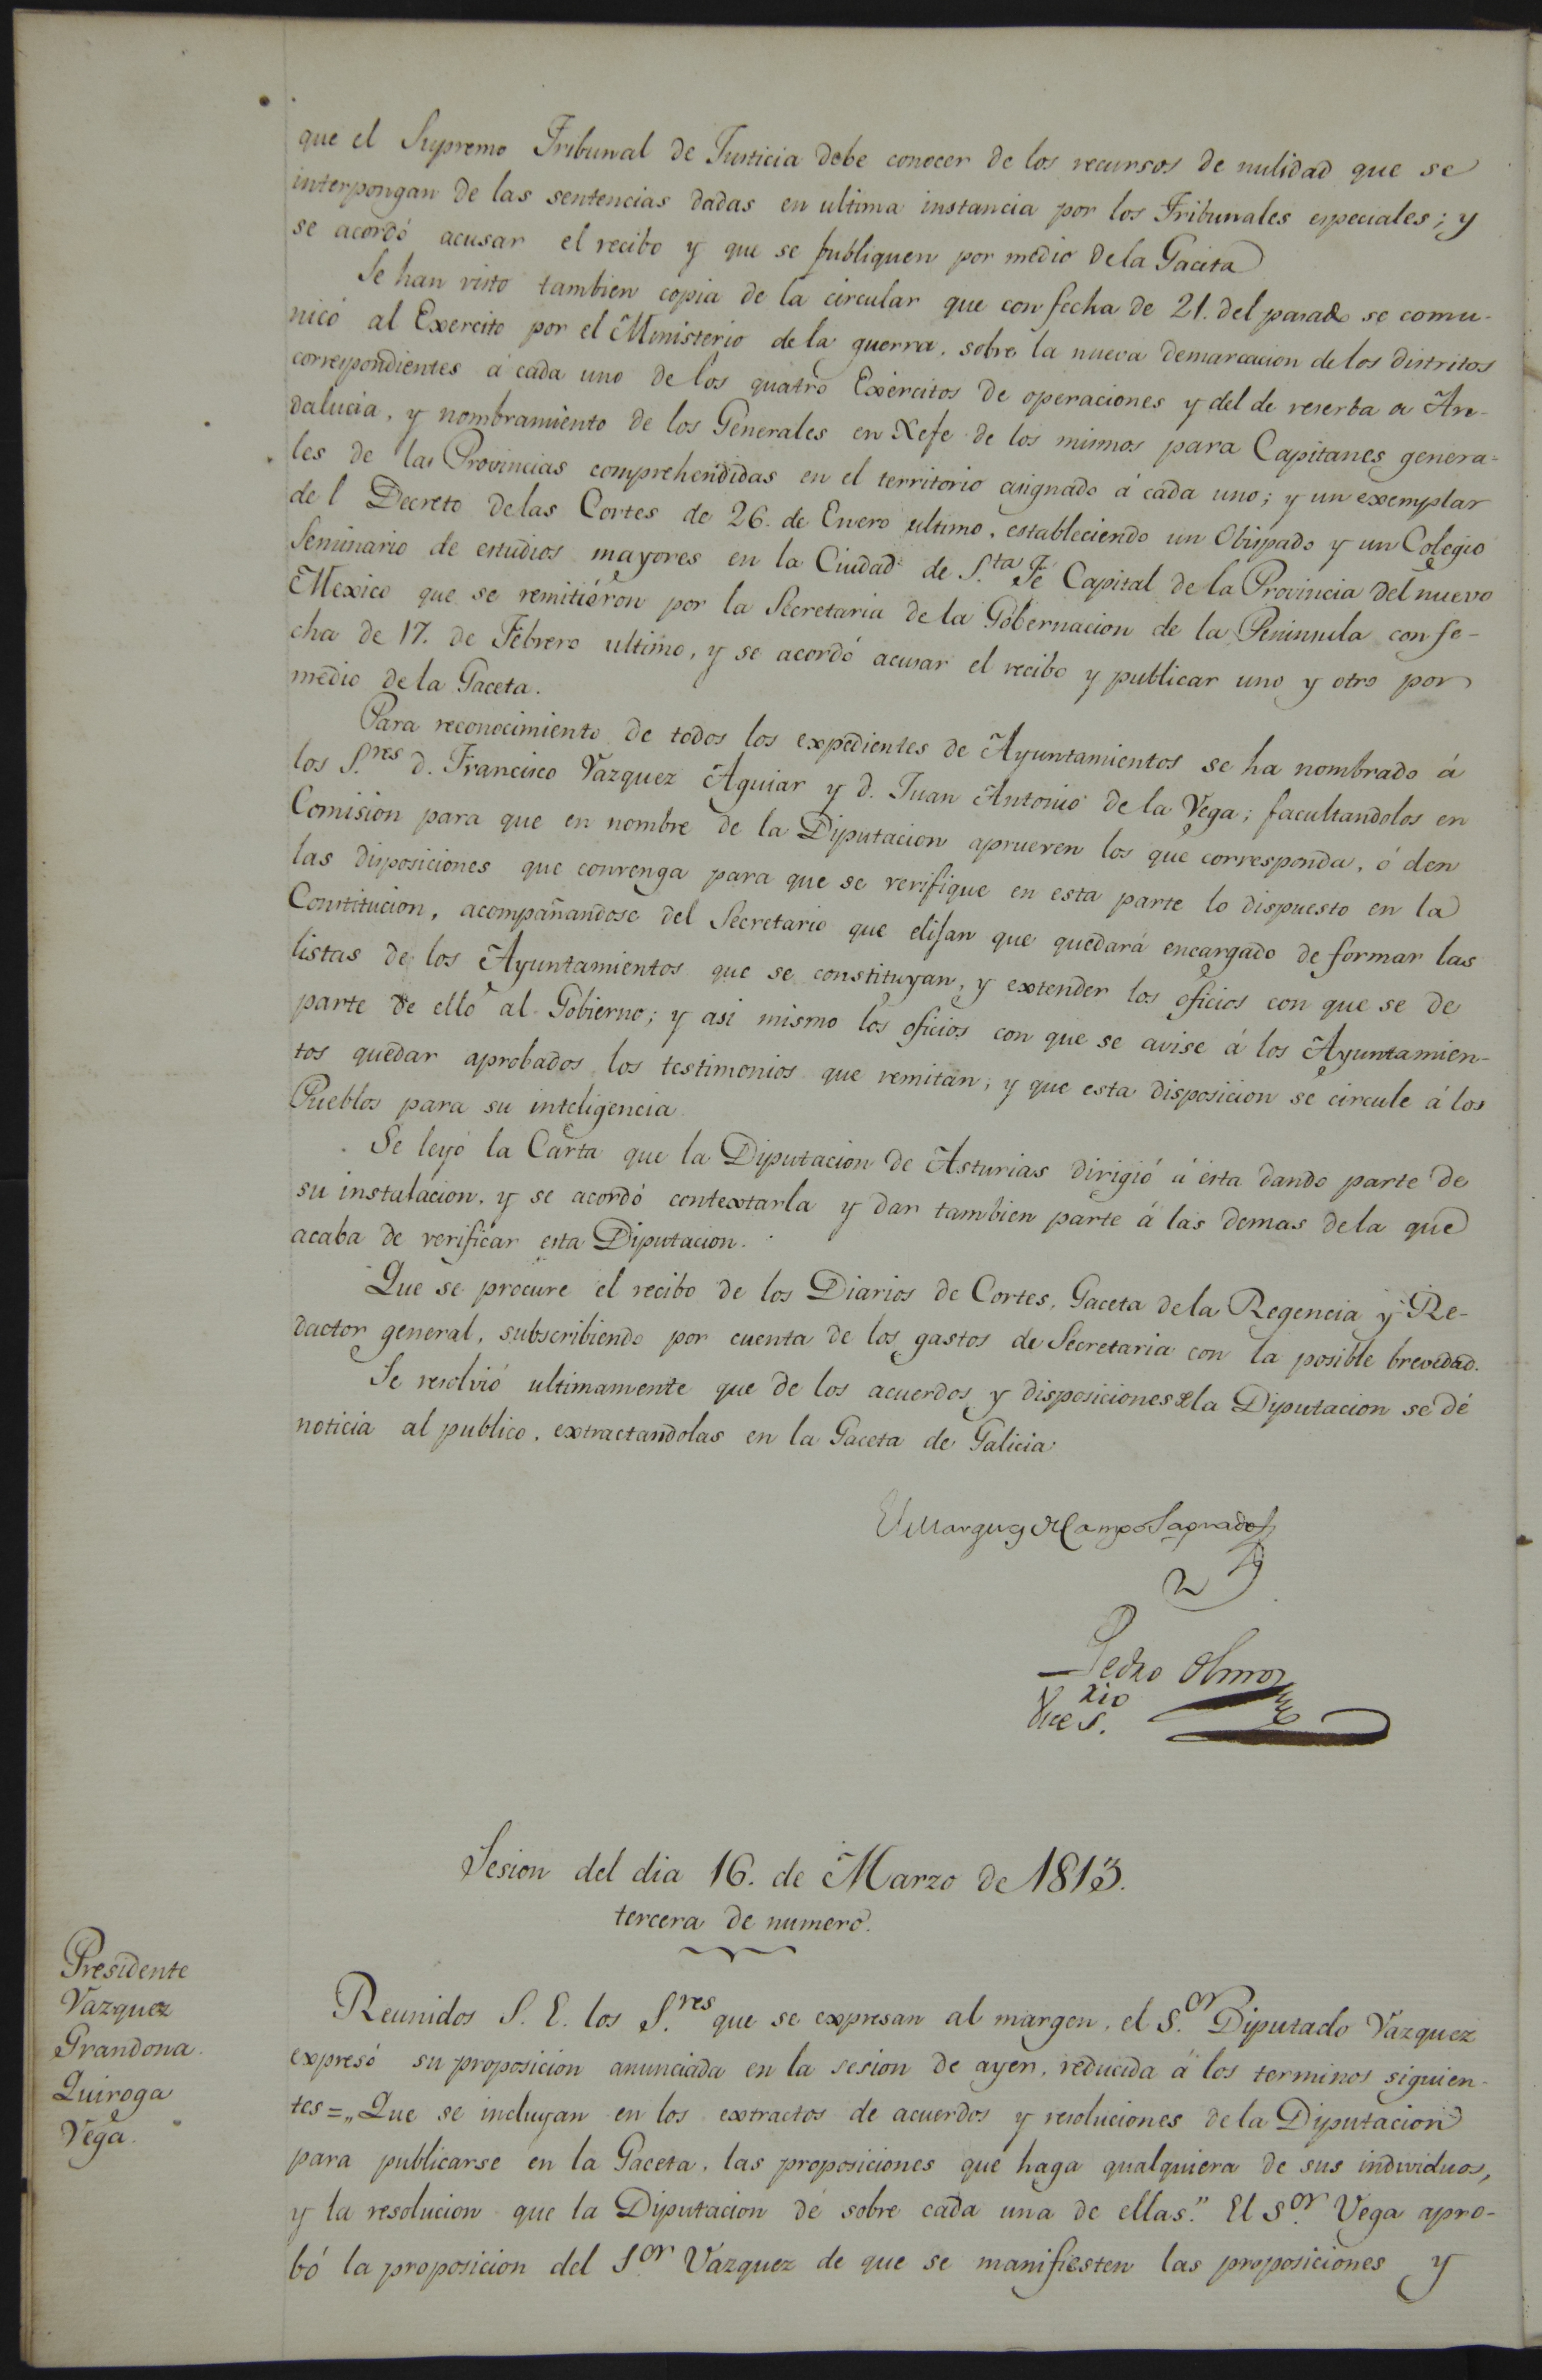 que el Supremo Tribunal de Justicia debe conocer de los recursos de nulidad que se
interpongan de las sentencias dadas en ultima instancia por los Tribunales especiales; y
se acordó acusar el recibo y que se publiquen por medio de la Gaceta
Se han visto tambien copia de la circular que con fecha de 21. del pasado se comu-
nicó al Exercito por el Ministerio de la guerra, sobre la nueva demarcacion de los distritos
correspondientes á cada uno de los quatro Exércitos de operaciones y del de reserba de An-
dalucia, y nombramiento de los Generales en Xefe de los mismos para Capitanes genera-
les de las Provincias comprehendidas en el territorio asignado á cada uno; y un exemplar
del Decreto de las Cortes de 26. de Enero ultimo, estableciendo un Obispado y un Colegio
Seminario de estudios mayores en la Ciudad de S.ta Fé Capital de la Provincia del nuevo
Mexico que se remitiéron por la Secretaria de la Gobernacion de la Peninsula con fe-
cha de 17. de Febrero ultimo, y se acordó acusar el recibo y publicar uno y otro por
medio de la Gaceta.
Para reconocimiento de todos los expedientes de Ayuntamientos se ha nombrado á
los S.res d. Francisco Vazquez Aguiar y d. Juan Antonio de la Vega; facultandolos en
Comision para que en nombre de la Diputacion aprueven los que corresponda, ó den
las disposiciones que convenga para que se verifique en esta parte lo dispuesto en la
Constitucion, acompañandose del Secretario que elijan que quedará encargado de formar las
listas de los Ayuntamientos que se constituyan, y extender los oficios con que se de
parte de ello al Gobierno; y asi mismo los oficios con que se avise á los Ayuntamien-
tos quedar aprobados los testimonios que remitan; y que esta disposicion se circule á los
Pueblos para su inteligencia
Se leyó la Carta que la Diputacion de Asturias dirigió á esta dando parte de
su instalacion, y se acordó contextarla y dar tambien parte á las demas de la que
acaba de verificar esta Diputacion.
Que se procure el recibo de los Diarios de Cortes, Gaceta de la Regencia y Re-
dactor general, subscribiendo por cuenta de los gastos de Secretaria con la posible brevedad.
Se resolvió ultimamente que de los acuerdos y disposiciones de la Diputacion se dé
noticia al publico, extractandolas en la Gaceta de Galicia
El Marques de Campo Sagrado
Pedro
Sesion del dia 16. de Marzo de 1813.
tercera de numero.
Presidente
Vazquez
Grandona.
Quiroga
Vega.
Reunidos S. E. los S.res que se expresan al margen, el S.or Diputado Vazquez
expresó su proposicion anunciada en la sesion de ayer, reducida á los terminos siguien-
tes = „Que se incluyan en los extractos de acuerdos y resoluciones de la Diputacion
para publicarse en la Gaceta, las proposiciones que haga qualquiera de sus individuos,
y la resolucion que la Diputacion dé sobre cada una de ellas." El S.or Vega apro-
bó la proposicion del S.or Vazquez de que se manifiesten las proposiciones y